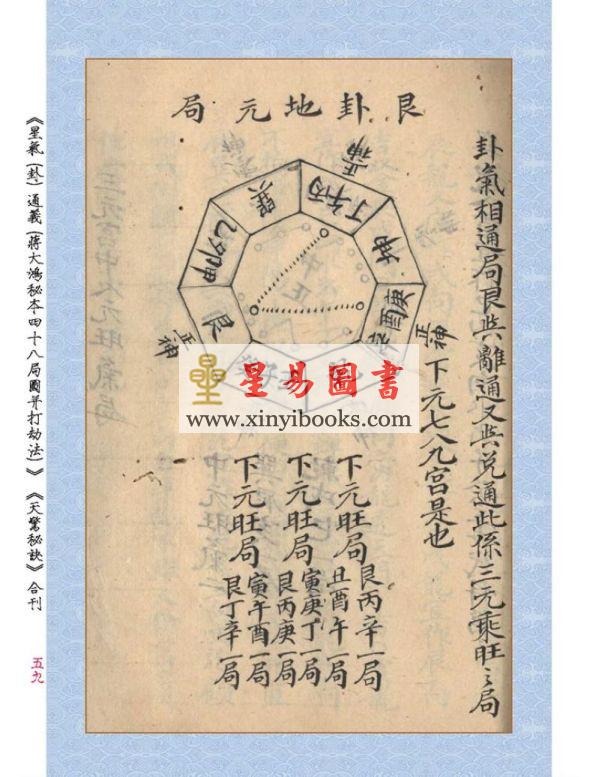 艮卦地元局
卦氣相通局艮與離通又與兌通此係三元乘旺之局
下元七八九宮是也
正神
丙午丁
坤
庚酉辛
正神
艮
正神
甲卯乙
巽
下元旺局
艮丙辛一局
丑酉午一局
下元旺局
寅庚丁一局
艮丙庚一局
下元旺局
寅午酉一局
艮丁辛一局
星易圖書
www.xinyibooks.com
《星氣(卦)通義(蔣大鴻秘本四十八局圖并打劫法)》《天驚秘訣》合刊
五九